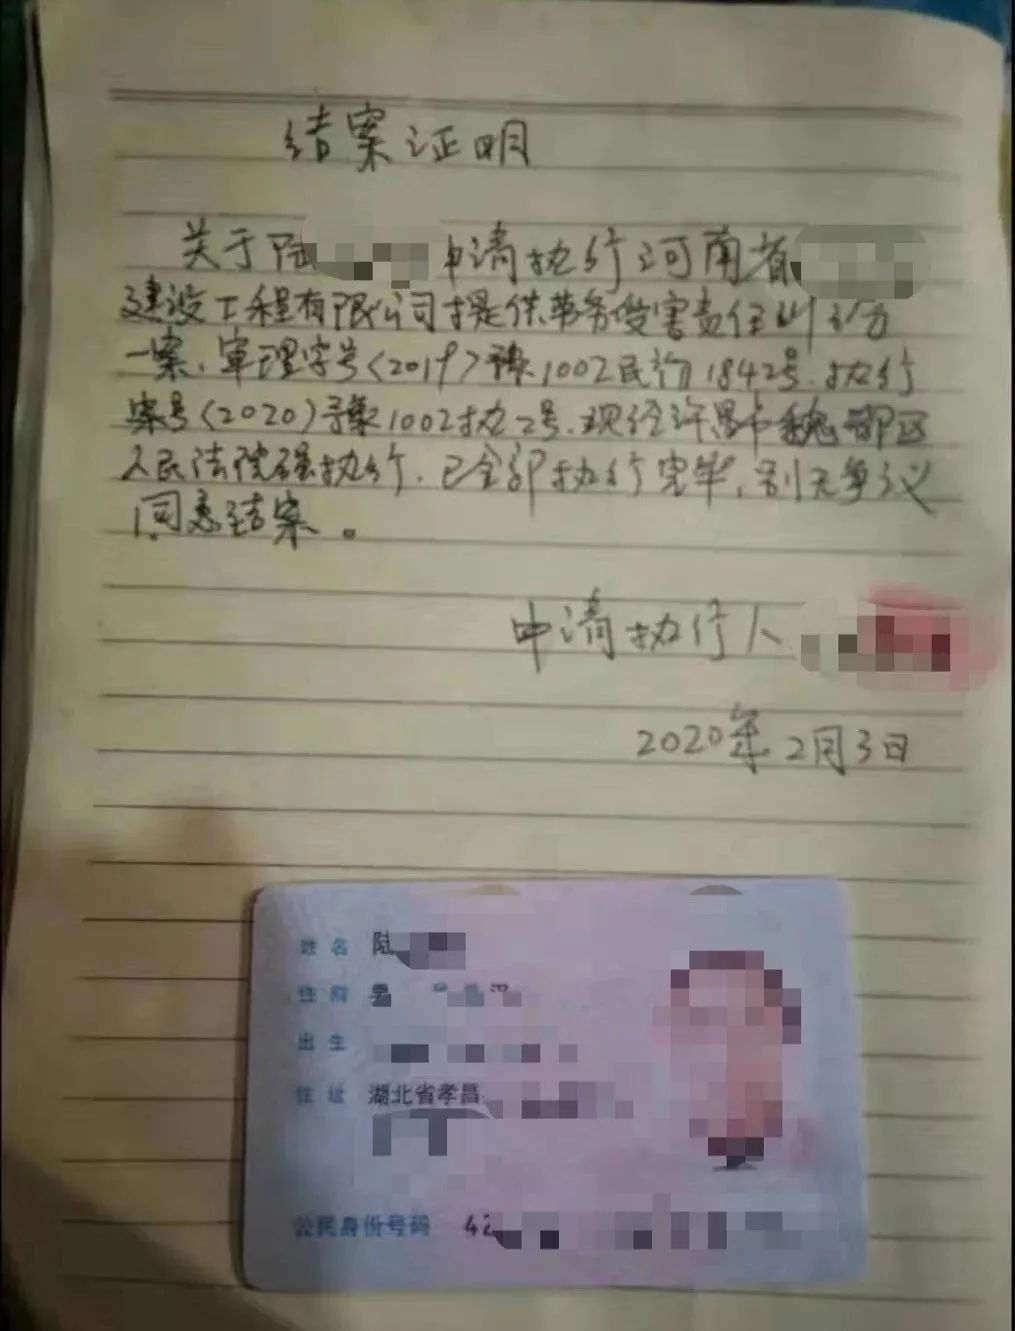 结案证明
关于陆 申请执行河南省
建设工程有限公司提供劳务受害责任纠纷
一案,审理字号<2019>豫1002民初1842号.执行
案号(2020)豫1002执2号.现经许昌市魏都区
人民法院强执行.已全部执行完毕,别无争议
同意结案。
申请执行人
2020年2月3日
姓名 陆
性别 男
出生
住址 湖北省孝昌
公民身份号码 42